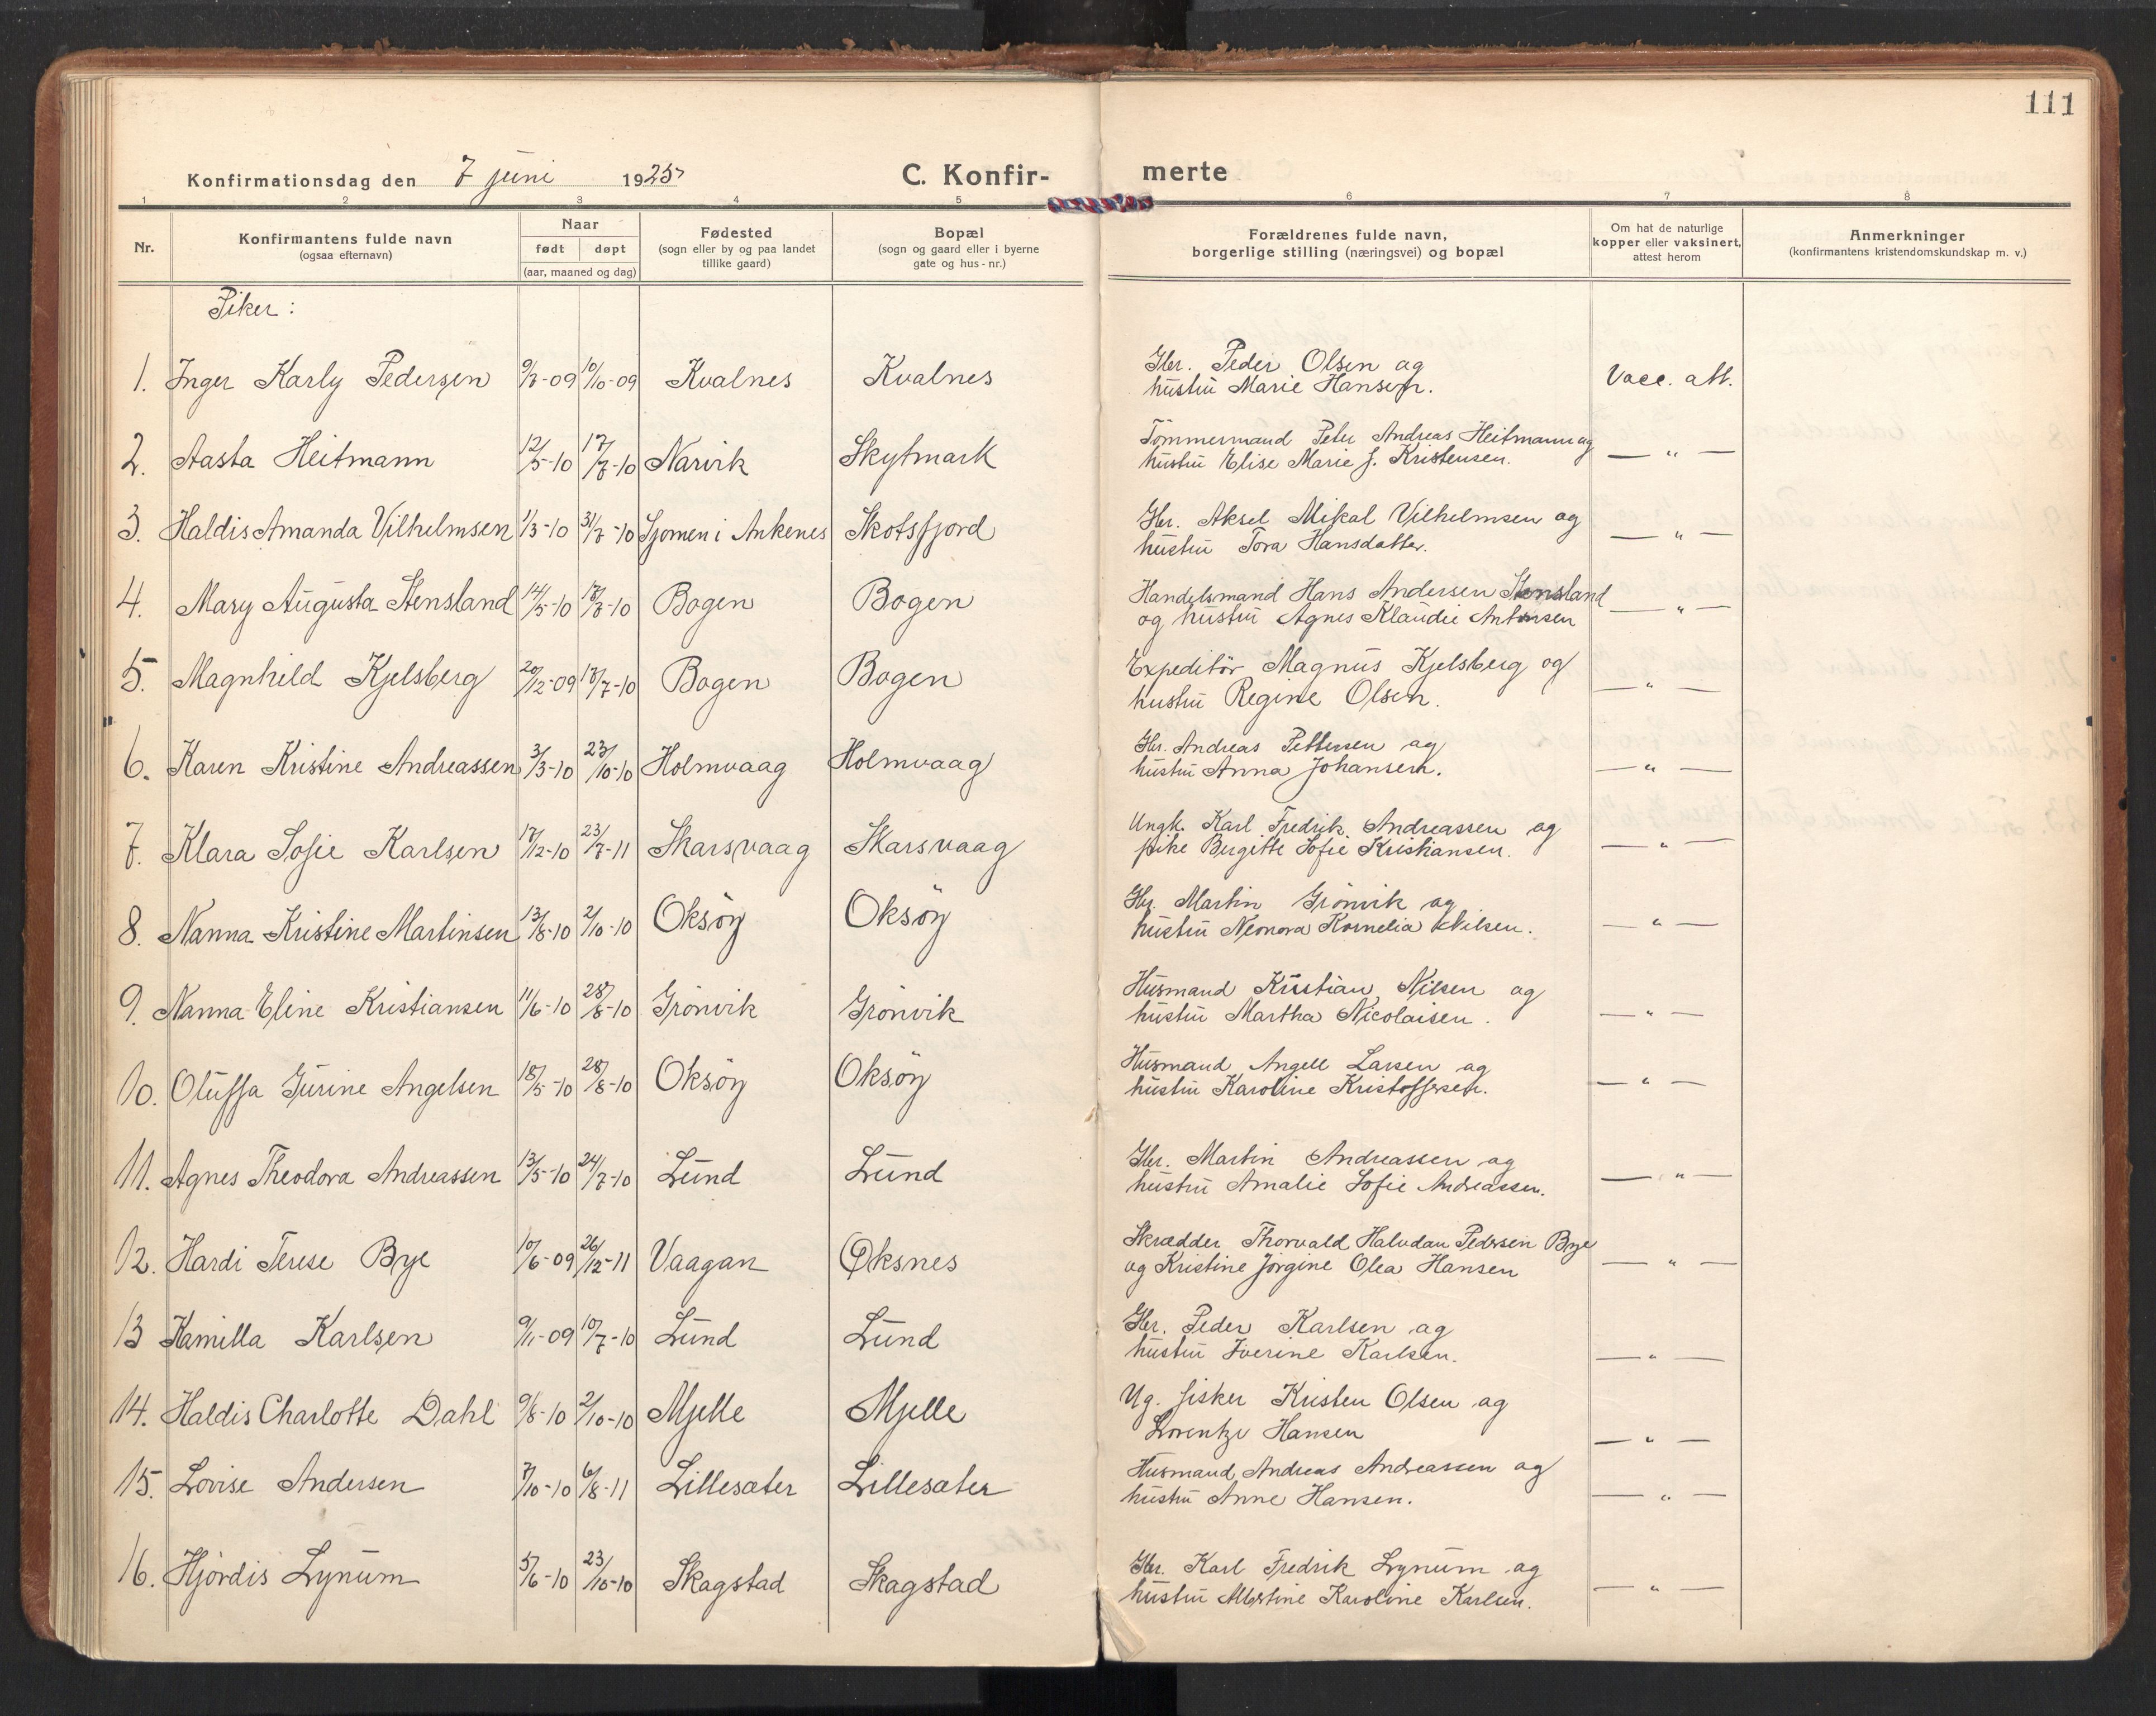 111
Konfirmationsdag den 7 juni 1925
C. Konfir-merte
1 2 3 4 5 6 7 8
Nr.
Konfirmantens fulde navn
(ogsaa efternavn)
Naar
født døpt
(aar, maaned og dag)
Fødested
(sogn eller by og paa landet
tillike gaard)
Bopæl
(sogn og gaard eller i byerne
gate og hus-nr.)
Forældrenes fulde navn,
borgerlige stilling (næringsvei) og bopæl
Om hat de naturlige
kopper eller vaksinert,
attest herom
Anmerkninger
(konfirmantens kristendomskundskap m. v.)
Piker:
1. Inger Karly Pedersen 9/7-09 10/10-09 Kvalnes Kvalnes Gbr. Peder Olsen og
hustru Marie Hansen. Vacc. att.
2. Aasta Heitmann 12/5-10 17/7-10 Narvik Skytmark Tömmermand Peter Andreas Heitmann og
hustru Elise Marie J. Kristensen. — " —
3. Haldis Amanda Vilhelmsen 1/3-10 31/7-10 Sjomen i Ankenes Skotsfjord Gbr. Aksel Mikal Vilhelmsen og
hustru Tora Hansdatter. — " —
4. Mary Augusta Stensland 14/5-10 17/7-10 Bogen Bogen Handelsmand Hans Andersen Stensland
og hustru Agnes Klaudie Antonsen — " —
5. Magnhild Kjelsberg 20/12-09 17/7-10 Bogen Bogen Expeditör Magnus Kjelsberg og
hustru Regine Olsen. — " —
6. Karen Kristine Andreassen 3/3-10 23/10-10 Holmvaag Holmvaag Gbr. Andreas Pettersen og
hustru Anna Johansen. — " —
7. Klara Sofie Karlsen 17/12-10 23/7-11 Skarsvaag Skarsvaag Ungk. Karl Fredrik Andreassen og
pike Bergitte Sofie Kristiansen. — " —
8. Nanna Kristine Martinsen 13/8-10 2/10-10 Oksöy Oksöy Gbr. Martin Grönvik og
hustru Neonora Kornelia Nilsen. — " —
9. Nanna Eline Kristiansen 11/6-10 28/8-10 Grönvik Grönvik Husmand Kristian Nilsen og
hustru Martha Nicolaisen. — " —
10. Oluffa Jurine Angelsen 18/5-10 28/8-10 Oksöy Oksöy Husmand Angell Larsen og
hustru Karoline Kristoffersen. — " —
11. Agnes Theodora Andreassen 13/5-10 24/7-10 Lund Lund Gbr. Martin Andreassen og
hustru Amalie Sofie Andreassen. — " —
12. Hardi Terese Bye 10/6-09 26/12-11 Vaagan Øksnes Skrædder Thorvald Halvdan Pedersen Bye
og Kristine Jörgine Olea Hansen — " —
13 Kamilla Karlsen 9/11-09 10/7-10 Lund Lund Gbr. Peder Karlsen og
hustru Iverine Karlsen. — " —
14. Haldis Charlotte Dahl 9/8-10 2/10-10 Mjelle Mjelle Ug. fisker Kristen Olsen og
Lorentze Hansen — " —
15. Lovise Andersen 7/10-10 6/8-11 Lillesæter Lillesæter Husmand Andreas Andreassen og
hustru Anne Hansen. — " —
16. Hjördis Lynum 5/6-10 23/10-10 Skagstad Skagstad Gbr. Karl Fredrik Lynum og
hustru Albertine Karoline Karlsen. — " —